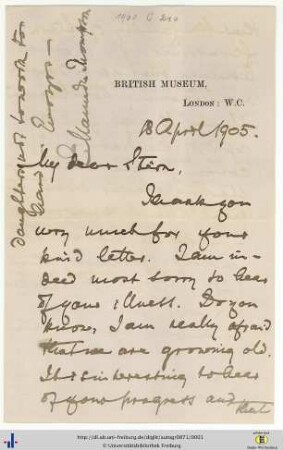 BRITISH MUSEUM,
LONDON: W.C.
18 April 1905.
My dear Stern,
Thank you
very much for your
kind letter. I am in-
deed most sorry to hear
of your illness. Do you
know, I am really afraid
that we are growing old.
It is interesting to hear
of your progress and
that
daughters
Yours
E Maunde Thompson
http://dl.ub.uni-freiburg.de/diglit/autogr0871/0001
© Universitätsbibliothek Freiburg